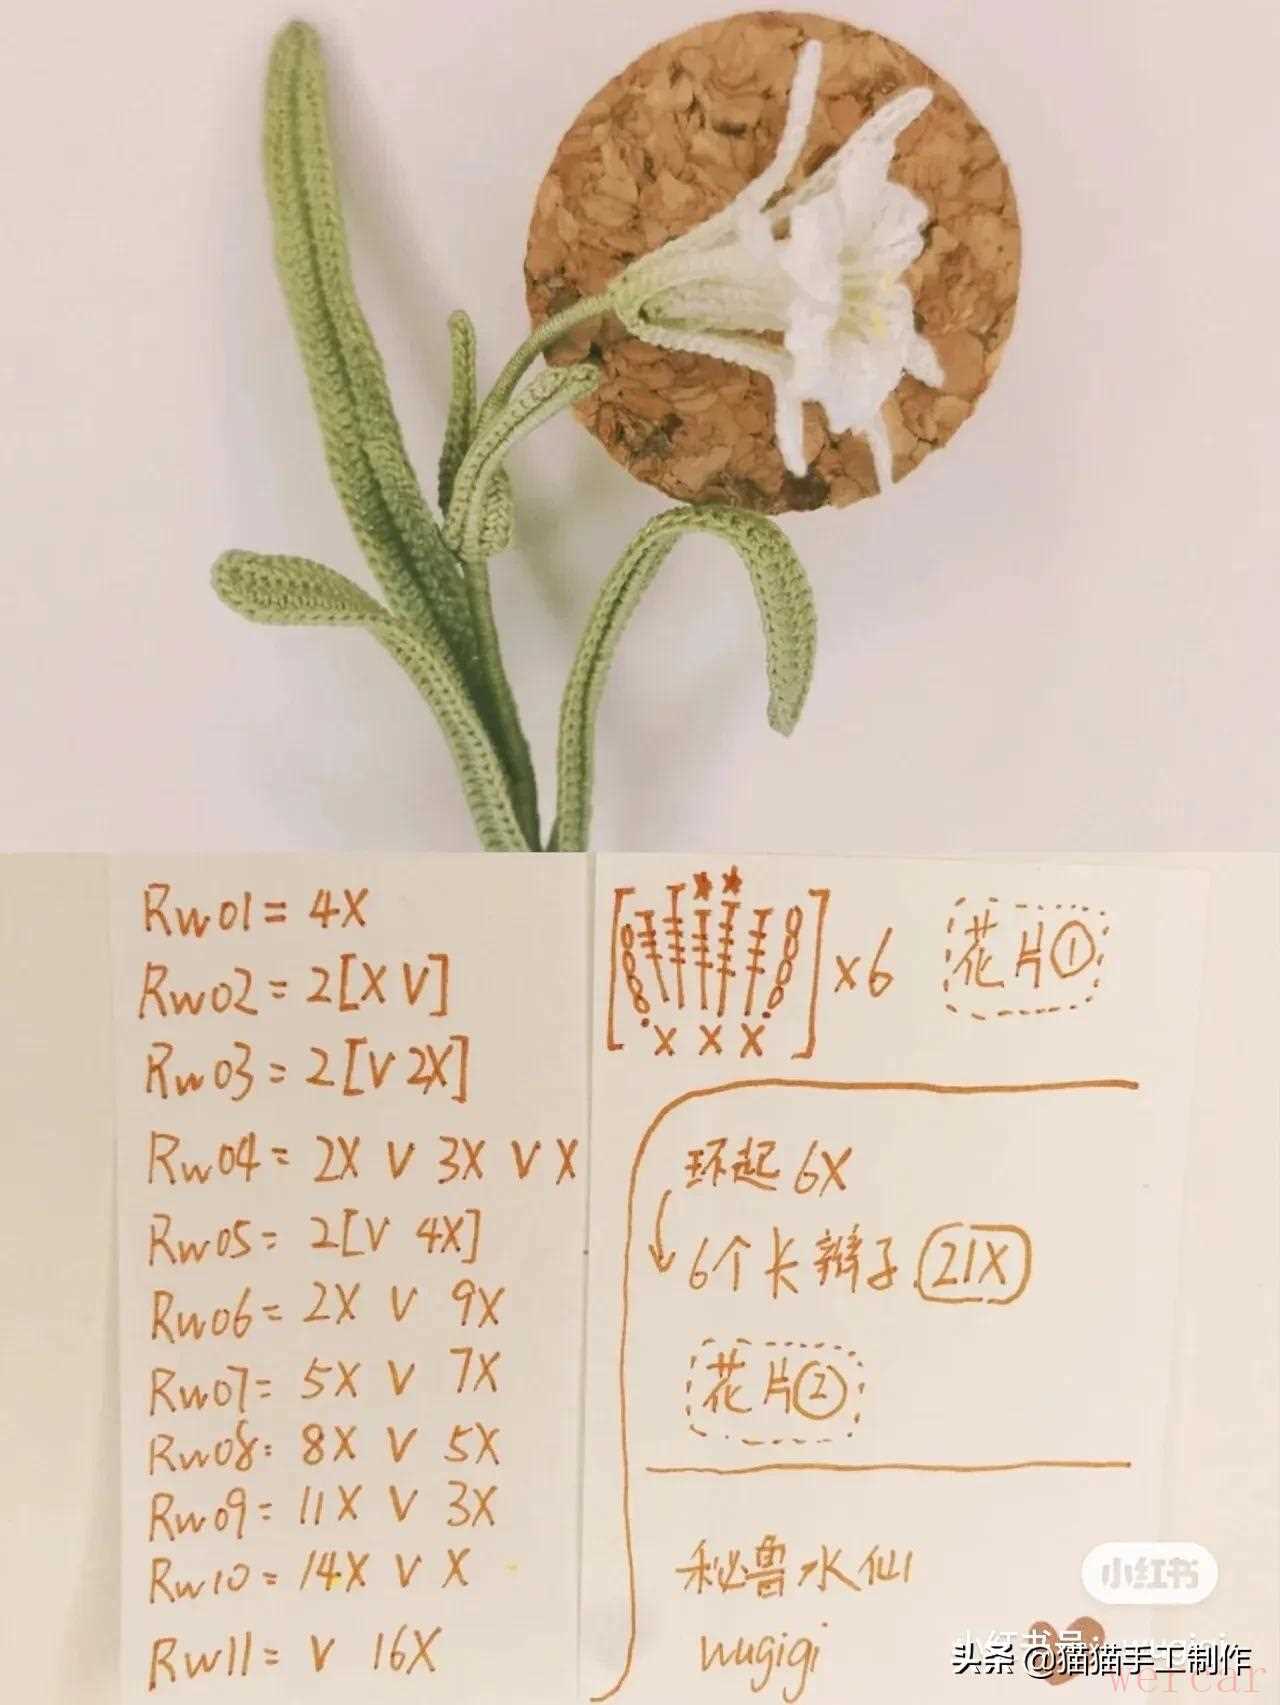 Rw01 = 4X
Rw02 = 2[X V]
Rw03 = 2[V 2X]
Rw04 = 2X V 3X V X
Rw05 = 2[V 4X]
Rw06 = 2X V 9X
Rw07 = 5X V 7X
Rw08: 8X V 5X
Rw09 = 11X V 3X
Rw10 = 14X V X
Rw11 = V 16X
X X X
x6
花片①
环起 6X
6个长辫子 21X
花片②
秘鲁水仙
wugigi
小红书
头条 @猫猫手工制作